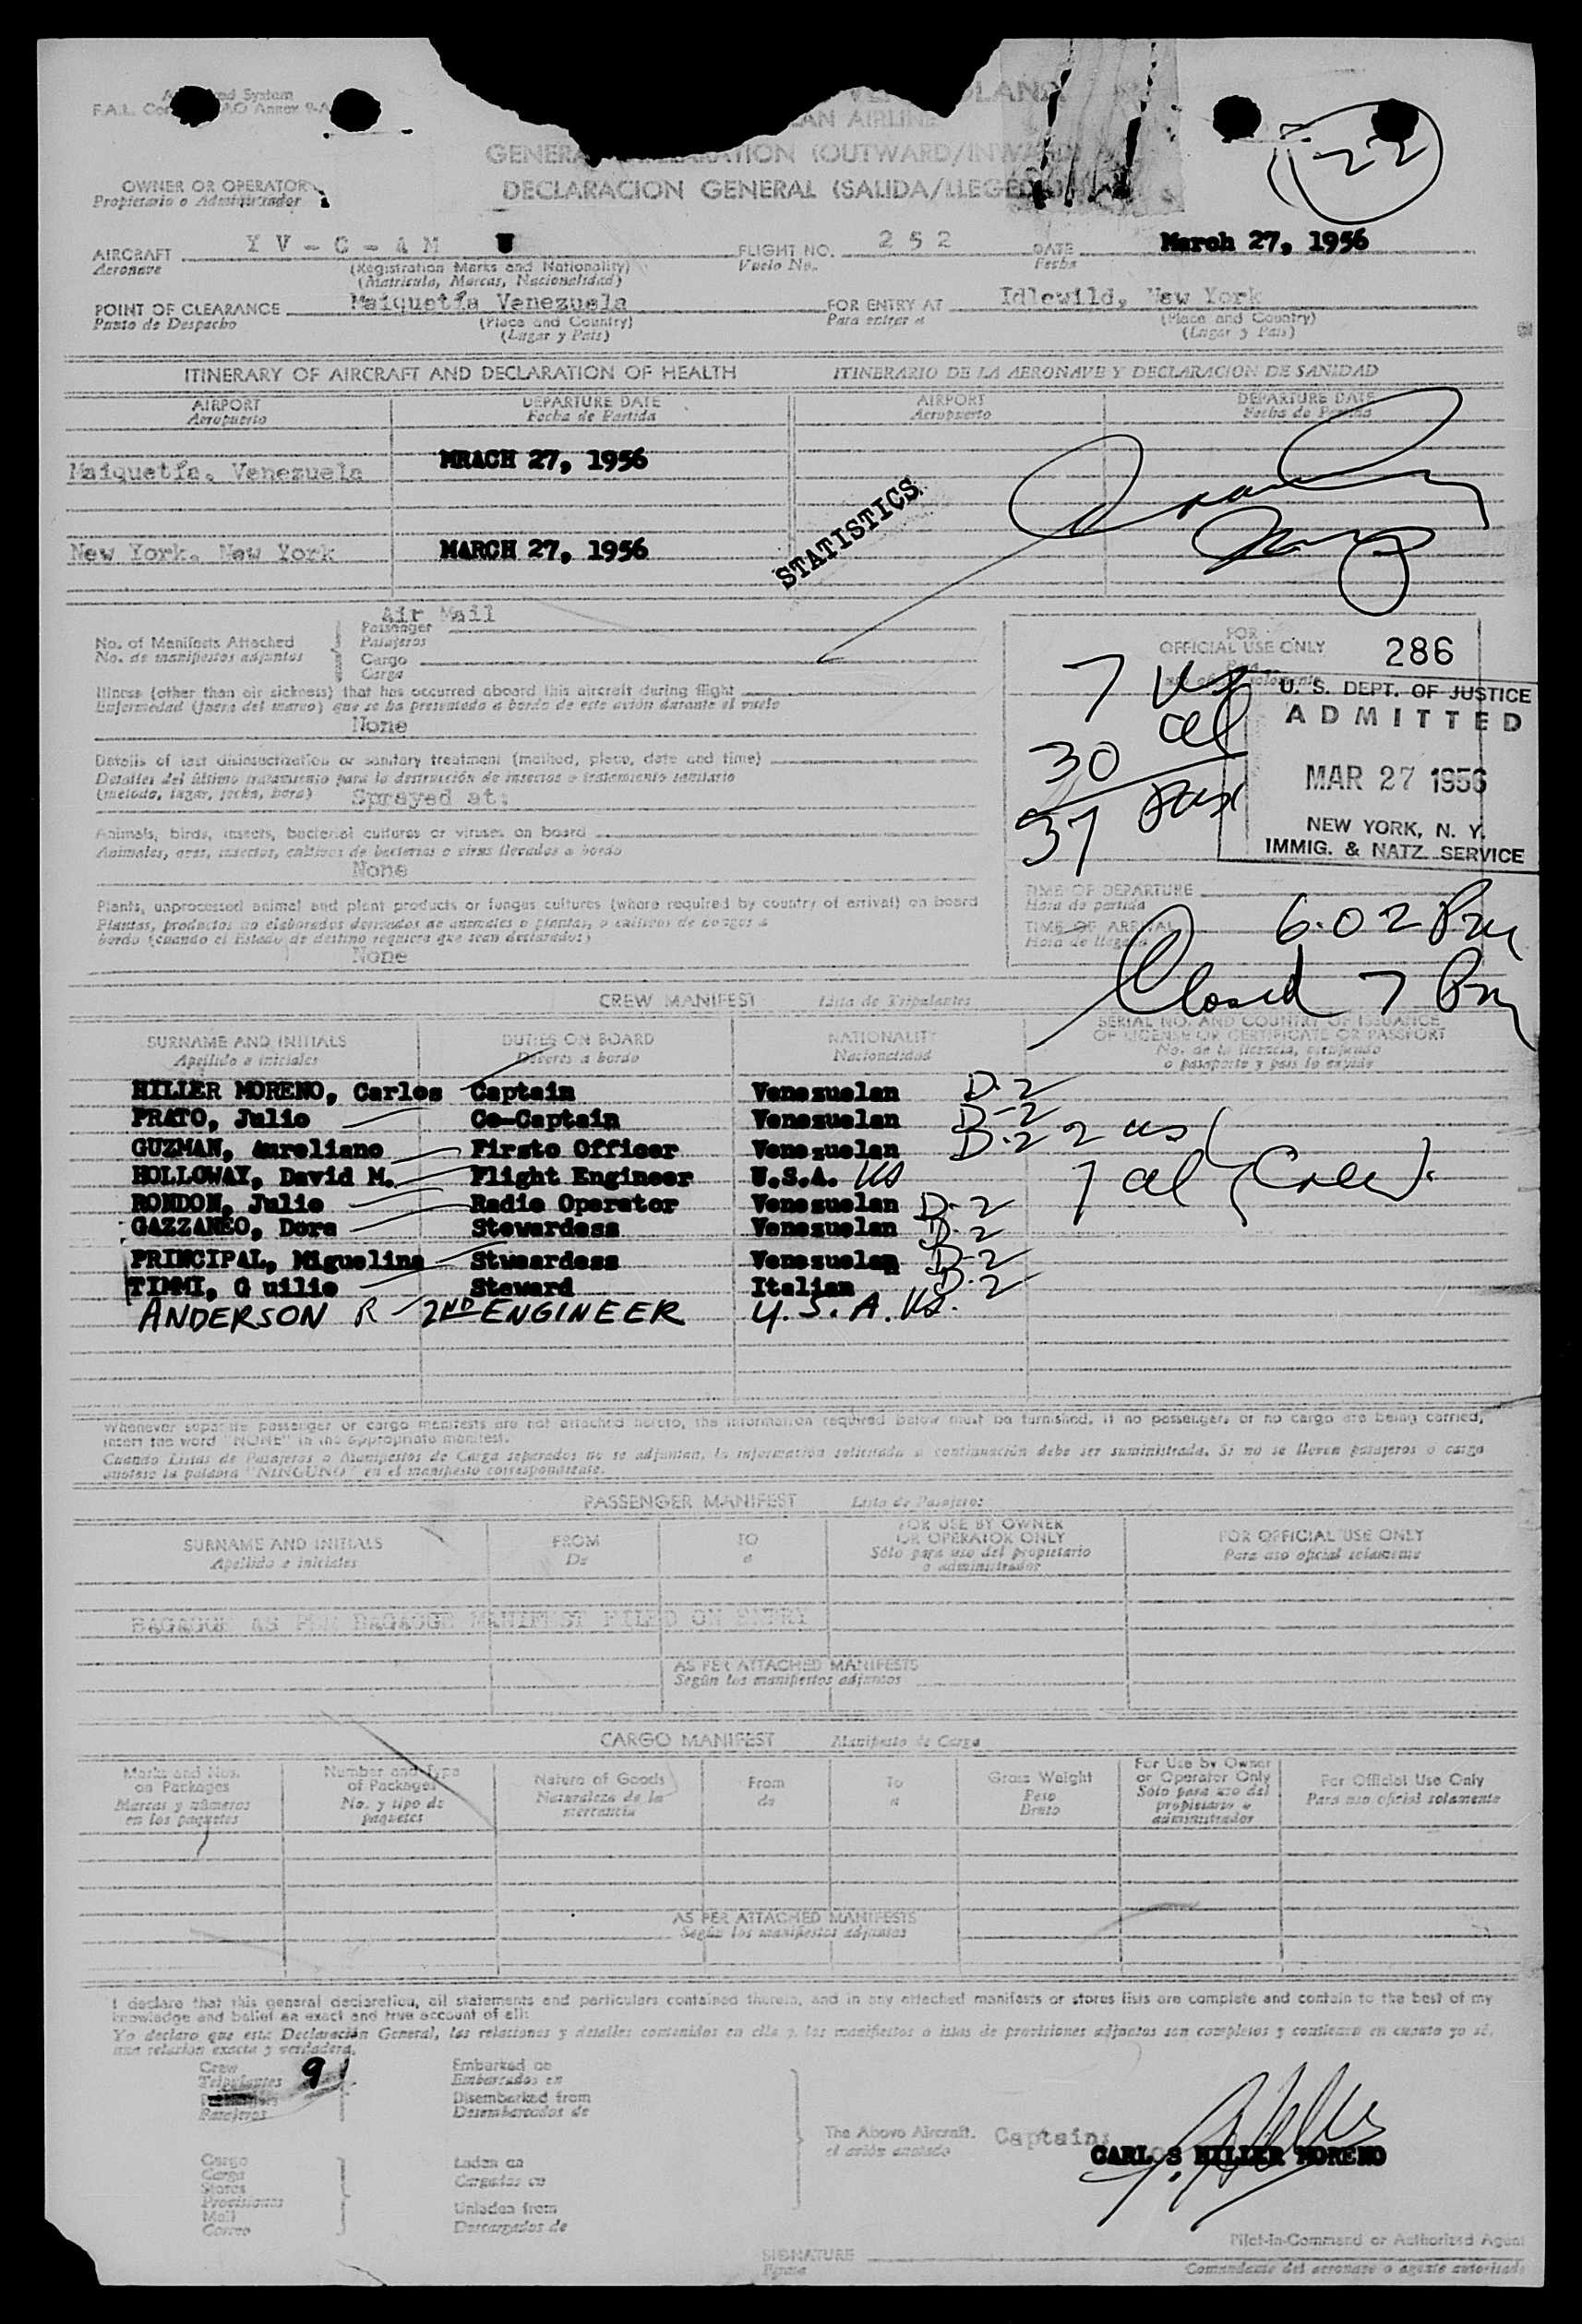 System
F.A.L. Annex 9-A
AN AIRLINE
GENERAL DECLARATION (OUTWARD/INWARD)
OWNER OR OPERATOR
Propietario o Administrador
DECLARACION GENERAL (SALIDA/LLEGEDA)
22
AIRCRAFT YV-C-AM U FLIGHT NO. 252 DATE March 27, 1956
Aeronave (Registration Marks and Nationality) Vuelo No. Fecha
(Matricula, Marcas, Nacionalidad)
POINT OF CLEARANCE Maiquetía Venezuela FOR ENTRY AT Idlewild, New York
Punto de Despacho (Place and Country) Para entrar a (Place and Country)
(Lugar y Pais) (Lugar y Pais)
ITINERARY OF AIRCRAFT AND DECLARATION OF HEALTH ITINERARIO DE LA AERONAVE Y DECLARACION DE SANIDAD
AIRPORT DEPARTURE DATE AIRPORT DEPARTURE DATE
Aeropuerto Fecha de Partida Aeropuerto Fecha de Partida
Maiquetía, Venezuela MRACH 27, 1956
STATISTICS
New York, New York MARCH 27, 1956
Air Mail
No. of Manifests Attached Passenger
No. de manifiestos adjuntos Pasajeros
Cargo
Carga
FOR
OFFICIAL USE ONLY 286
Illness (other than air sickness) that has occurred aboard this aircraft during flight
Enfermedad (fuera del mareo) que se ha presentado a bordo de este avión durante el vuelo
None
7 us
30 al
37 Pax
U. S. DEPT. OF JUSTICE
ADMITTED
MAR 27 1956
NEW YORK, N. Y.
IMMIG. & NATZ. SERVICE
Details of last disinsectization or sanitary treatment (method, place, date and time)
Detalles del último tratamiento para la destrucción de insectos o tratamiento sanitario
(método, lugar, fecha, hora) Sprayed at:
Animals, birds, insects, bacterial cultures or viruses on board
Animales, aves, insectos, cultivos de bacterias o virus llevados a bordo
None
Plants, unprocessed animal and plant products or fungus cultures (where required by country of arrival) on board
Plantas, productos no elaborados derivados de animales o plantas, o cultivos de hongos a
bordo (cuando el Estado de destino requiera que sean declarados)
None
TIME OF DEPARTURE
Hora de partida
TIME OF ARRIVAL 6:02 Pm
Hora de llegada
Closed 7 Pm
CREW MANIFEST Lista de Tripulantes
SURNAME AND INITIALS DUTIES ON BOARD NATIONALITY SERIAL NO. AND COUNTRY OF ISSUANCE
OF LICENSE OR CERTIFICATE OR PASSPORT
Apellido e iniciales Deberes a bordo Nacionalidad No. de la licencia, certificado
o pasaporte y pais lo expide
HILLER MORENO, Carlos Captain Venezuelan D-2
PRATO, Julio Co-Captain Venezuelan D-2
GUZMAN, Aureliano Firsto Officer Venezuelan D-2 2 us
HOLLOWAY, David M. Flight Engineer U.S.A. US 7 al Crew
RONDON, Julio Radio Operator Venezuelan D-2
GAZZANEO, Dora Stewardess Venezuelan D-2
PRINCIPAL, Miguelina Stweardess Venezuelan D-2
TIMMI, G uilio Steward Italian D-2
ANDERSON R 2ND ENGINEER U.S.A. US.
Whenever separate passenger or cargo manifests are not attached hereto, the information required below must be furnished. If no passengers or no cargo are being carried,
insert the word "NONE" in the appropriate manifest.
Cuando Listas de Pasajeros o Manifiestos de Carga separados no se adjuntan, la información solicitada a continuación debe ser suministrada. Si no se lleven pasajeros o carga
anótese la palabra "NINGUNO" en el manifiesto correspondiente.
PASSENGER MANIFEST Lista de Pasajeros
SURNAME AND INITIALS FROM TO FOR USE BY OWNER
OR OPERATOR ONLY FOR OFFICIAL USE ONLY
Apellido e iniciales De a Sólo para uso del propietario
o administrador Para uso oficial solamente
BAGAGGE AS PER BAGAGGE MANIFEST FILED ON ENTRY
AS PER ATTACHED MANIFESTS
Según los manifiestos adjuntos
CARGO MANIFEST Manifiesto de Carga
Marks and Nos.
on Packages
Marcas y números
en los paquetes
Number and Type
of Packages
No. y tipo de
paquetes
Nature of Goods
Naturaleza de la
mercancia
From
de
To
a
Gross Weight
Peso
Bruto
For Use by Owner
or Operator Only
Sólo para uso del
propietario o
administrador
For Official Use Only
Para uso oficial solamente
AS PER ATTACHED MANIFESTS
Según los manifiestos adjuntos
I declare that this general declaration, all statements and particulars contained therein, and in any attached manifests or stores lists are complete and contain to the best of my
knowledge and belief an exact and true account of all:
Yo declaro que esta Declaración General, las relaciones y detalles contenidos en ella y los manifiestos o listas de provisiones adjuntos son completos y contienen en cuanto yo sé,
una relación exacta y verdadera.
Crew 9
Tripulantes
Pasajeros
Embarked on
Embarcados en
Disembarked from
Desembarcados de
The Above Aircraft.
el avión anotado
Captain:
CARLOS HILLER MORENO
Cargo
Carga
Stores
Provisiones
Mail
Correo
Laden on
Cargados en
Unladen from
Descargados de
Pilot-in-Command or Authorized Agent
SIGNATURE
Firma
Comandante del aeronave o agente autorizado